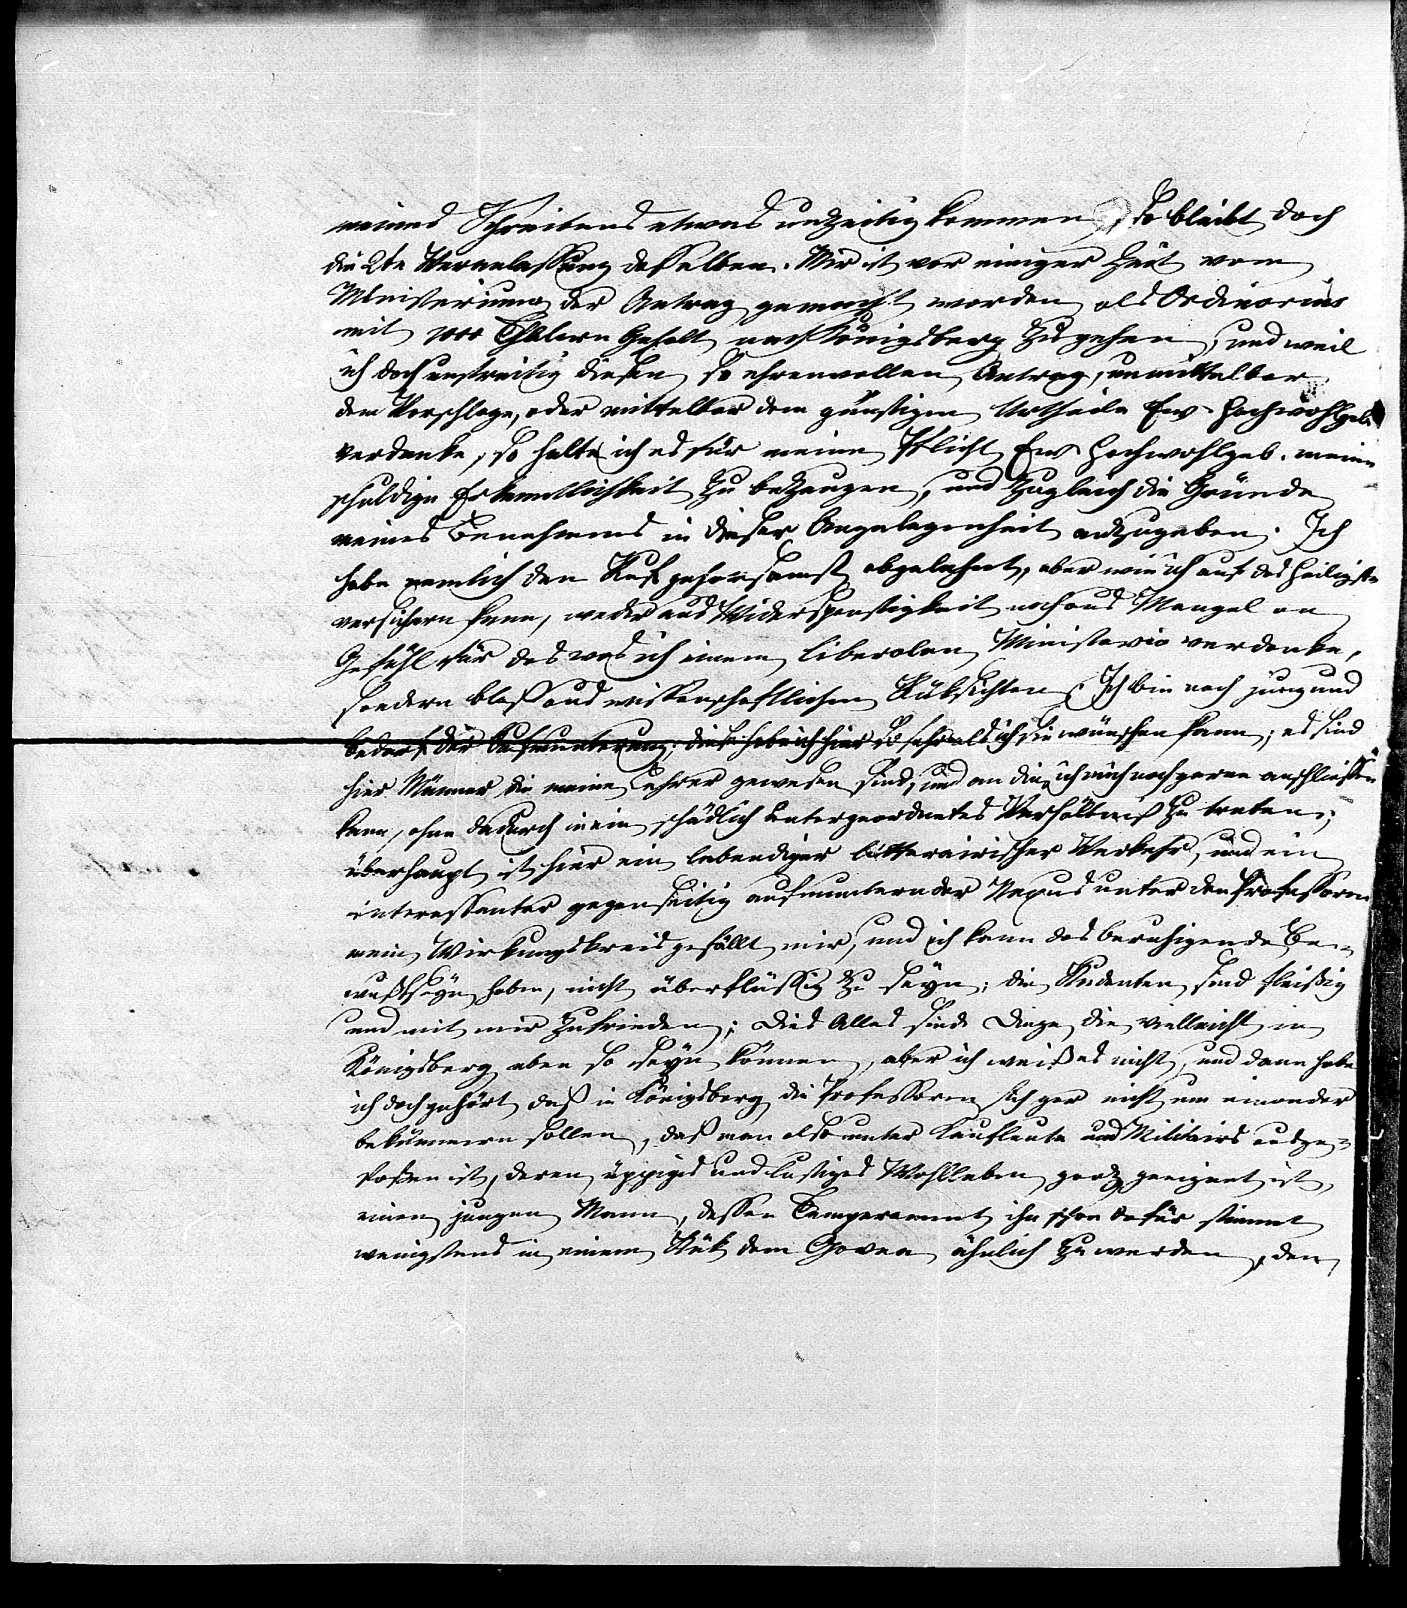 meines Schreibens etwas unzeitig kommen, so bleibt doch
die 2te Veranlassung desselben. Mir ist vor einiger Zeit vom
Ministerium der Antrag gemacht worden als Ordinarius
mit Thalern Gehalt nach Königsberg zu gehen, und weil
ich doch unstreitig diesen so ehrenvollen Antrag, unmittelbar
dem Vorschlage, oder mittelbar dem günstigen Urtheile Ew. Hochwohlgeb.
verdanke, so halte ich es für meine Pflicht Ew. Hochwohlgeb. meine
schuldige Erkenntlichkeit zu bezeugen, und zugleich die Gründe
meines Benehmens in dieser Angelegenheit anzugeben. Ich
habe nemlich den Ruf gehorsamst abgelehnt, aber wie ich auf das Heiligste
versichern kann, weder aus Widerspenstigkeit noch aus Mangel an
Gefühl für das was ich einem liberalen Ministerio verdanke,
sondern blos aus wissenschaftlichen Rüksichten. Ich bin noch jung und
bedarf der Aufmunterung; diese habe ich hier so sehr als ich sie wünschen kann; es sind
hier Männer die meine Lehrer gewesen sind, und an die ich mich noch gerne anschließen
kann, ohne dadurch in ein schädlich untergeordnetes Verhältniß zu treten;
überhaupt ist hier ein lebendiger litterairischer Verkehr, und ein
interessanter gegenseitig aufmunternder Nexus unter den Professoren
mein Wirkungskreis gefällt mir, und ich kann das beruhigende Be-
wußtseyn haben, nicht überflüssig zu seyn; die Studenten sind fleißig
und mit mir zufrieden; dies Alles sind Dinge die vielleicht in
Königsberg eben so seyn können, aber ich weiß es nicht, und dann habe
ich doch gehört daß in Königsberg die Professoren sich gar nicht um einander
bekümmern sollen, daß man also unter Kaufleute und Militairs ausge-
stoßen ist, deren üppiges und lustiges Wohlleben ganz geeignet ist,
einen jungen Mann, dessen Temperament ihn schon dafür stimmt
wenigstens in einem Stük dem ähnlich zu werden, den